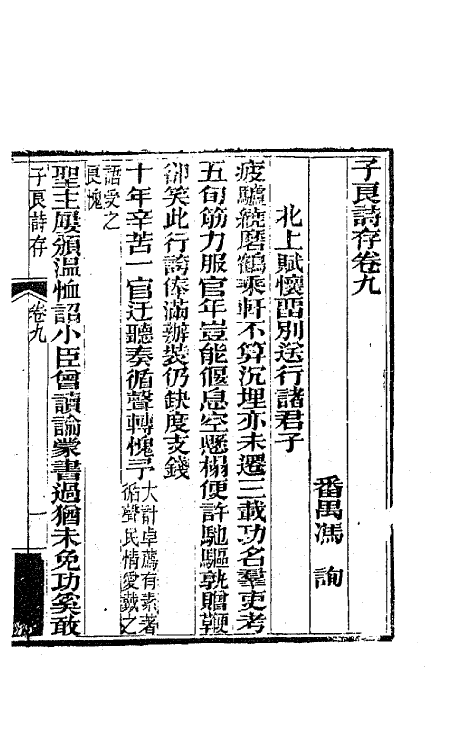 子良詩存卷九
番禺馮 詢
北上賦懷畱別送行諸君子
疲驢繞磨鶴乘軒不算沉埋亦未遷三載功名羣吏考
五旬筋力服官年豈能偃息空懸榻便許馳驅孰贈鞭
卻笑此行誇俸滿辦裝仍缺度支錢
十年辛苦一官迂聽奏循聲轉愧乎大計卓薦有素著
循聲民情愛戴之
語受之
良愧
聖主屢頒溫恤詔小臣曾讀諭蒙書過猶未免功奚敢
子良詩存
卷九
一